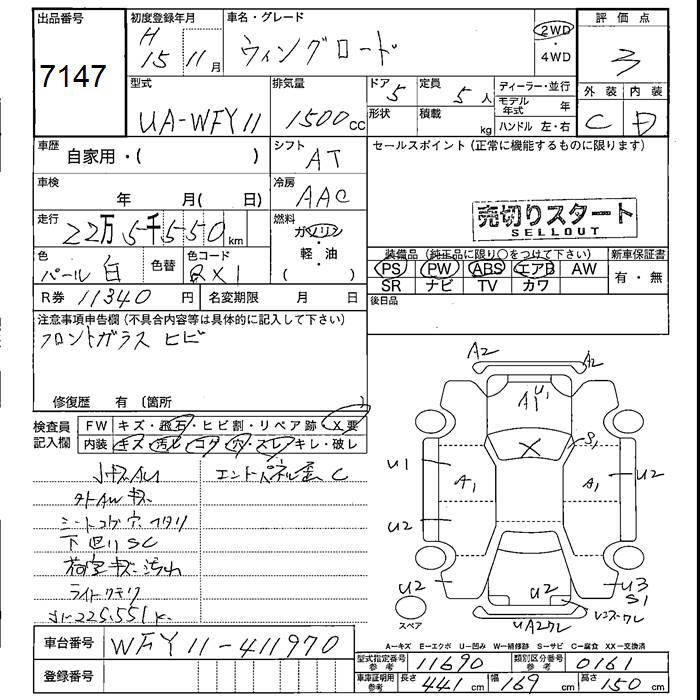 出品番号
7147
初度登録年月
H 15 11月
車名・グレード
ウィングロード
2WD
・
4WD
評価点
3
外装 内装
C D
型式
UA-WFY11
排気量
1500cc
ドア 5
形状
定員 5人
積載 kg
ディーラー・並行
モデル年式 年
ハンドル 左・右
車歴
自家用・( )
シフト
AT
セールスポイント(正常に機能するものに限ります)
車検
年 月( 日)
冷房
AAC
走行
22万5千550km
燃料
ガソリン
・
軽・油
( )
売切りスタート
SELLOUT
色
パール白
色替
色コード
QX1
装備品(純正品に限り○をつけて下さい)
PS PW ABS エアB AW
SR ナビ TV カワ
新車保証書
有・無
R券 11340円
名変期限 月 日
後日品
注意事項申告欄(不具合内容等は具体的に記入して下さい)
フロントガラス ヒビ
修復歴 有 (箇所 )
検査員
記入欄
FW キズ・飛石・ヒビ割・リペア跡・X要
内装 キズ・汚レ・コゲ・穴・スレ・キレ・破レ
小キズAU
外AWキズ
シートコゲ穴 ヘタリ
下回りSC
荷室キズ汚れ
ライトクモリ
226.551k
エンドパネル歪 C
A2
A2
A1 U1
X
S1
U1
A1
A1
U2
U2
U2
U2
U3
S1
UA2ワレ
レンズワレ
スペア
A-キズ E-エクボ U-凹み W-補修跡 S-サビ C-腐食 XX-交換済
車台番号
WFY11-411970
登録番号
型式指定番号 参考
11690
類別区分番号 参考
0161
車庫証明用 参考
長さ 441cm
幅 169cm
高さ 150cm